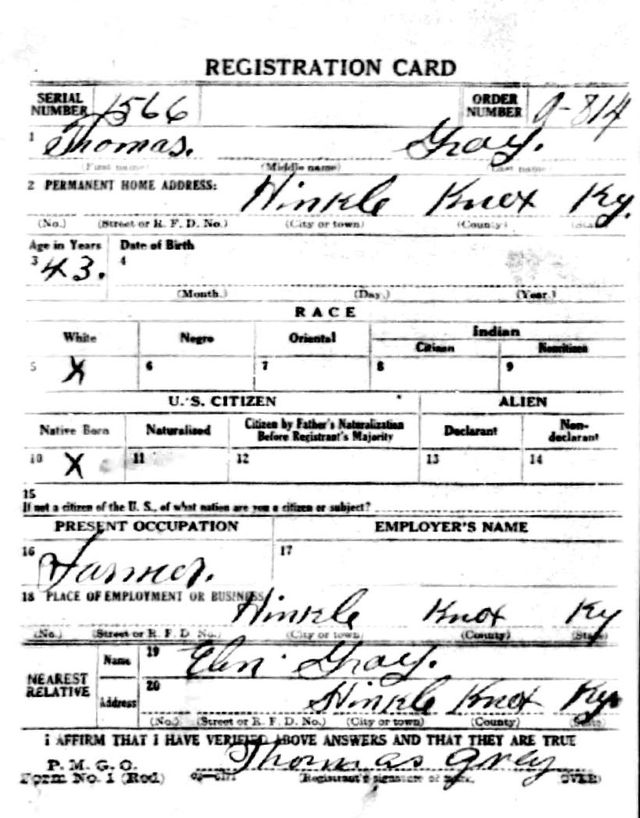 REGISTRATION CARD
SERIAL NUMBER 1566 ORDER NUMBER A-814
1 Thomas. Gray.
(First name) (Middle name) (Last name)
2 PERMANENT HOME ADDRESS: Hinkle Knox Ky.
(No.) (Street or R. F. D. No.) (City or town) (County) (State)
Age in Years Date of Birth
3 43. 4
(Month.) (Day.) (Year.)
RACE
White Negro Oriental Indian
Citizen Noncitizen
5 X 6 7 8 9
U. S. CITIZEN ALIEN
Native Born Naturalized Citizen by Father's Naturalization Before Registrant's Majority Declarant Non-declarant
10 X 11 12 13 14
15
If not a citizen of the U. S., of what nation are you a citizen or subject?
PRESENT OCCUPATION EMPLOYER'S NAME
16 Farmer. 17
18 PLACE OF EMPLOYMENT OR BUSINESS Hinkle Knox Ky
(No.) (Street or R. F. D. No.) (City or town) (County) (State)
NEAREST RELATIVE Name 19 Gray.
Address 20 Hinkle Knox Ky
(No.) (Street or R. F. D. No.) (City or town) (County) (State)
I AFFIRM THAT I HAVE VERIFIED ABOVE ANSWERS AND THAT THEY ARE TRUE
P. M. G. O. Thomas Gray
Form No. 1 (Red) (Registrant's signature or mark.) (OVER)